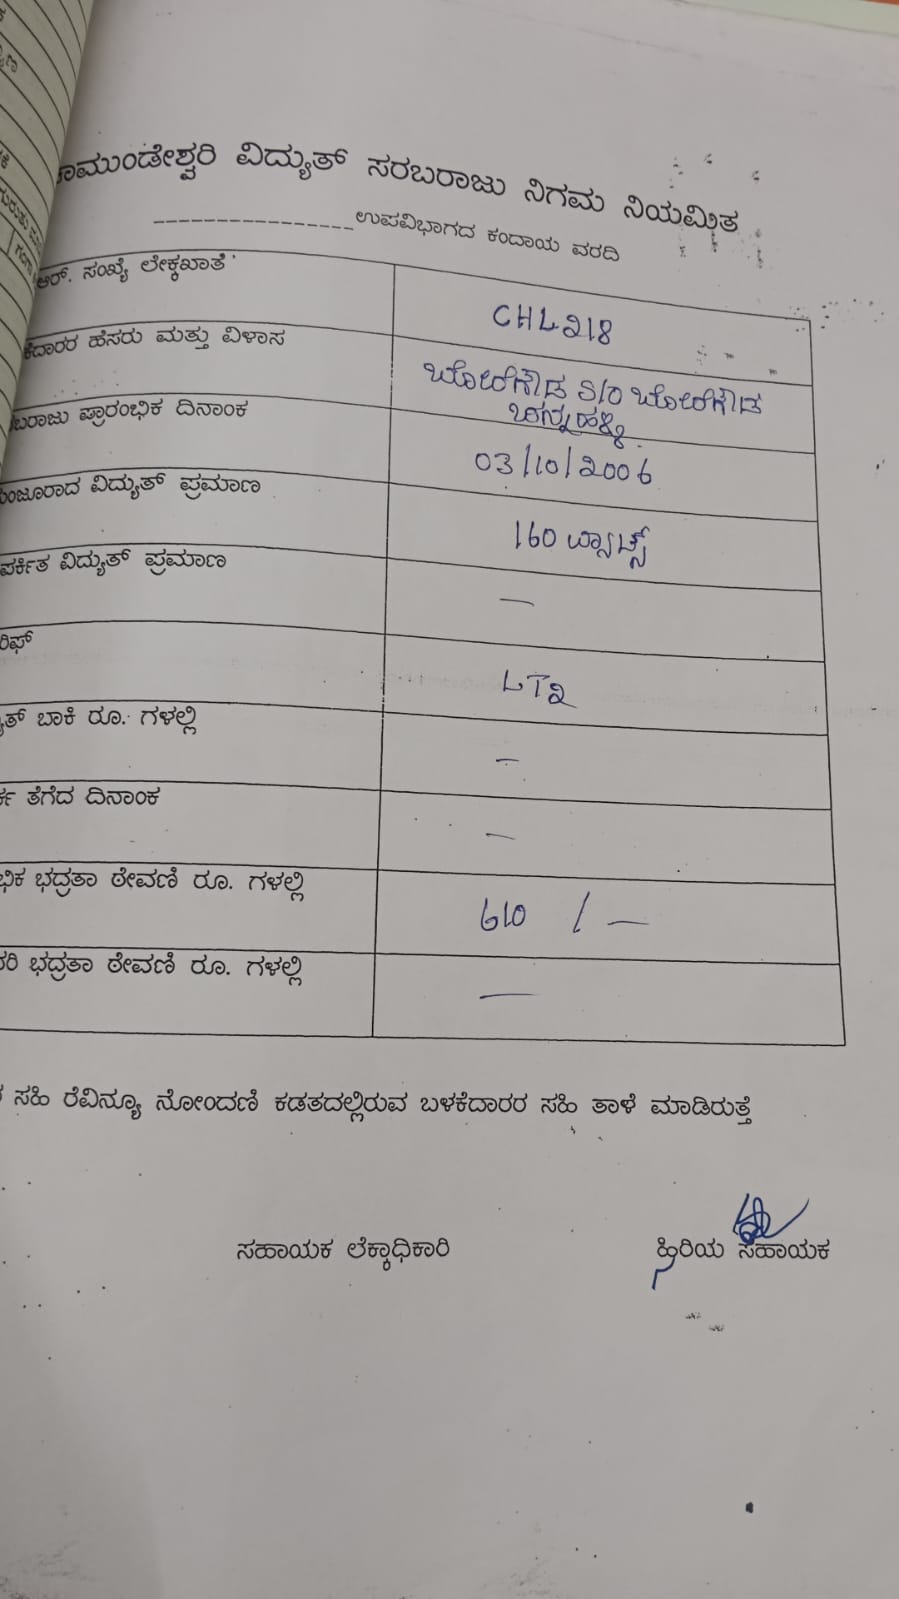 ಚಾಮುಂಡೇಶ್ವರಿ ವಿದ್ಯುತ್ ಸರಬರಾಜು ನಿಗಮ ನಿಯಮಿತ
________________ಉಪವಿಭಾಗದ ಕಂದಾಯ ವರದಿ
ಆರ್. ಸಂಖ್ಯೆ ಲೇಕ್ಕಖಾತೆ
CHL218
ಕೆದಾರರ ಹೆಸರು ಮತ್ತು ವಿಳಾಸ
ಬೋರೇಗೌಡ S/O ಬೋರೇಗೌಡ
ಬರಾಜು ಪ್ರಾರಂಭಿಕ ದಿನಾಂಕ
03/10/2006
ಮಂಜೂರಾದ ವಿದ್ಯುತ್ ಪ್ರಮಾಣ
160 ವ್ಯಾಟ್ಸ್
ಪರ್ಕಿತ ವಿದ್ಯುತ್ ಪ್ರಮಾಣ
—
ರಿಫ್
LT2
ತ್ ಬಾಕಿ ರೂ. ಗಳಲ್ಲಿ
—
ತೆಗೆದ ದಿನಾಂಕ
—
ಭಿಕ ಭದ್ರತಾ ಠೇವಣಿ ರೂ. ಗಳಲ್ಲಿ
610 / —
ರಿ ಭದ್ರತಾ ಠೇವಣಿ ರೂ. ಗಳಲ್ಲಿ
—
ಸಹಿ ರೆವಿನ್ಯೂ ನೋಂದಣಿ ಕಡತದಲ್ಲಿರುವ ಬಳಕೆದಾರರ ಸಹಿ ತಾಳೆ ಮಾಡಿರುತ್ತೆ
ಸಹಾಯಕ ಲೆಕ್ಕಾಧಿಕಾರಿ
ಹಿರಿಯ ಸಹಾಯಕ